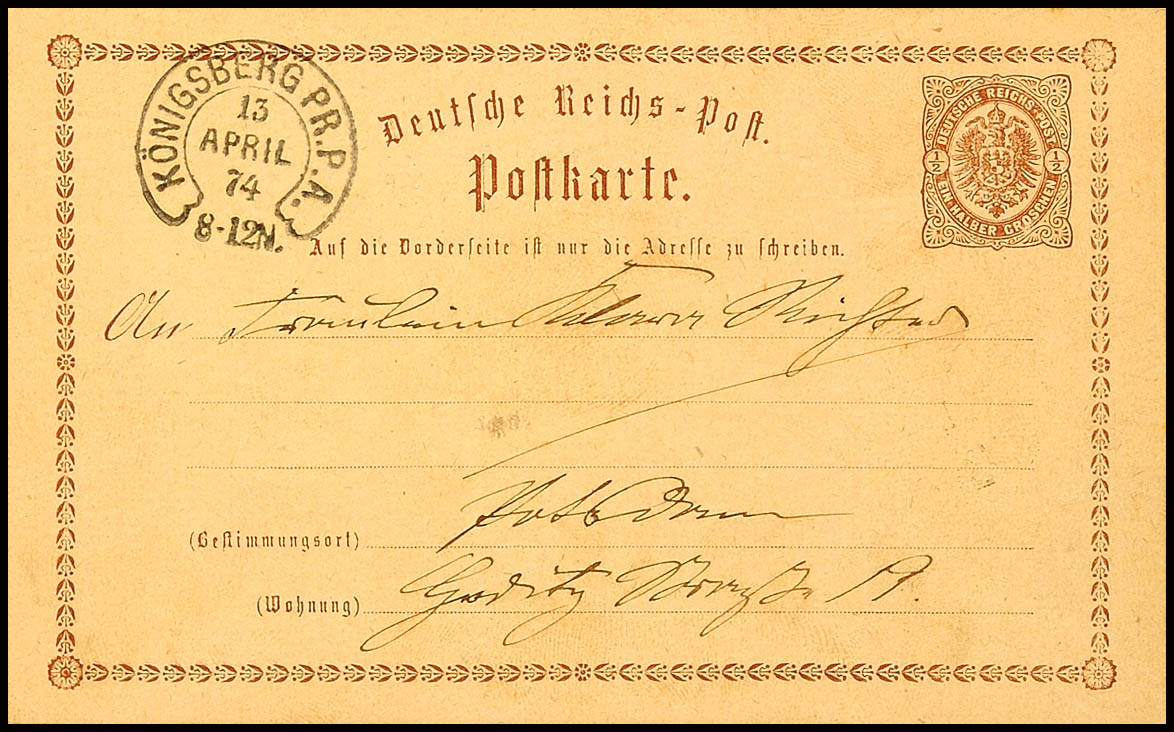 KÖNIGSBERG PR. P. A.
13
APRIL
74
8-12N.
Deutsche Reichs-Post.
Postkarte.
DEUTSCHE REICHS-POST
1/2 1/2
EIN HALBER GROSCHEN
Auf die Vorderseite ist nur die Adresse zu schreiben.
An Fräulein Clara Richter
Potsdam
(Bestimmungsort)
(Wohnung) Straße